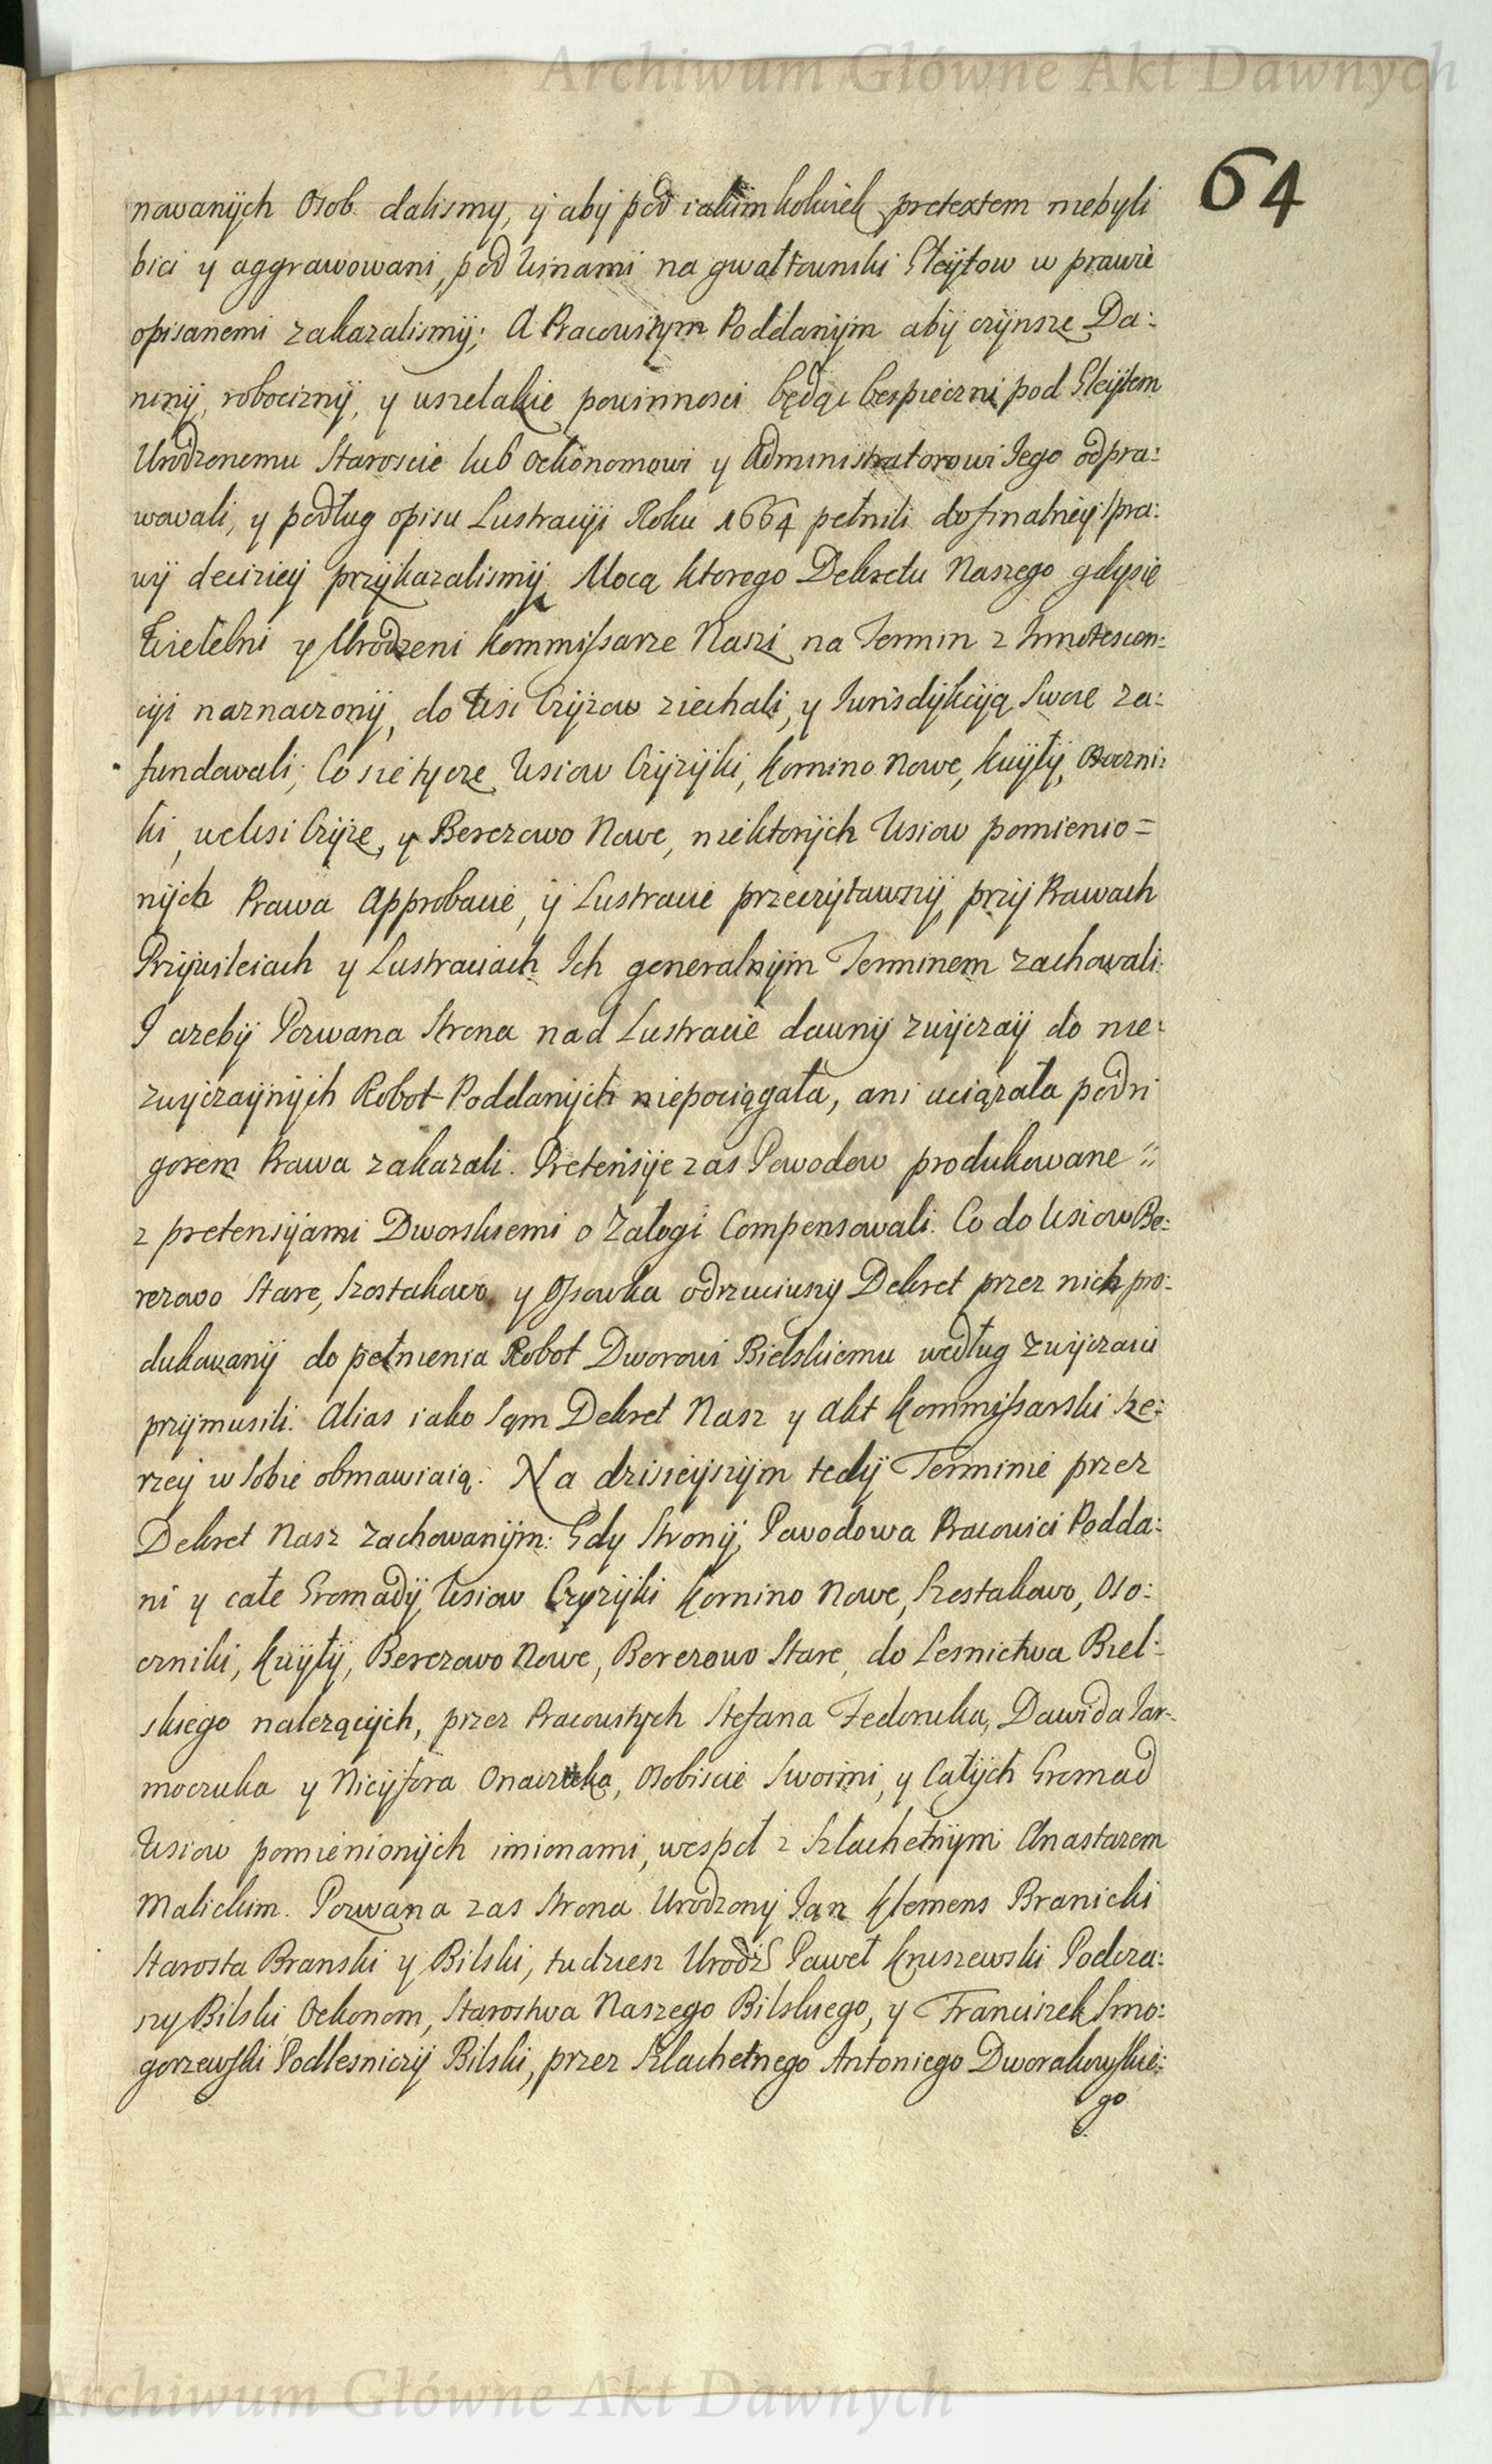 Archiwum Główne Akt Dawnych
64
nowanych Osob dalismy, y aby pod iakimkolwiek pretextem niebyli
bici y aggrawowani, pod winami na gwałtowniki Gleytow w prawie
opisanemi zakazalismy; A Pracowitym Poddanym aby czynsze Da:
niny, robocizny, y wszelakie powinnosci będąc bespieczni pod Gleytem
Urodzonemu Staroscie lub Oekonomowi y Administratorowi Jego odpra:
wowali, y podług opisu Lustracyi Roku 1664 pełnili do finalney spra:
wy deciziey przykazalismy. Mocą ktorego Dekretu Naszego gdysię
Wielebni y Urodzeni Kommissarze Naszi na Termin z Innotescen:
cyi naznaczony, do Wsi Czyzow ziechali, y Jurisdykcyą Swoię za:
fundowali; Co się tycze Wsiow Czyzyki, Kornino Nowe, Kuyły, Osoczni:
ki, we Wsi Czyże, y Berezowo Nowe, niektorych Wsiow pomienio=
nych Prawa Approbacie, y Lustracie przeczytawszy, przy Prawach
Przywileiach y Lustraciach Ich generalnym Terminem zachowali.
I azeby Pozwana Strona nad Lustracie dawny zwyczay do nie:
zwyczaynych Robot Poddanych niepociągała, ani uciązała pod ri
gorem Prawa zakazali. Pretensije zas Powodow produkowane =
z pretensyami Dworskiemi o Załogi Compensowali. Co do Wsiow Be:
rezowo Stare, Szostakowo y Ossowka odrzuciwszy Dekret przez nich pro:
dukowany do pełnienia Robot Dworowi Bielskiemu według Zwyczaiu
przymusili. Alias iako Sąm Dekret Nasz y Akt Kommissarski sze:
rzey w sobie obmawiaią. Na dzisieyszym tedy Terminie przez
Dekret Nasz Zachowanym: Gdy Strony, Powodowa Pracowici Podda:
ni y całe Gromady, Wsiow Czyzyki Kornino Nowe, Szostakowo, Oso:
czniki, Kuyły, Berezowo Nowe, Berezowo Stare, do Lesnictwa Biel:
skiego nalezących, przez Pracowitych Stefana Fedoruka, Dawida Jar-
moczuka y Nicyfora Onaczuka, Osobiscie Swoimi, y Całych Gromad
Wsiow pomienionych imionami, wespoł z Szlachetnym Anastazem
Malickim. Pozwana zas Strona Urodzony Jan Klemens Branicki
Starosta Branski y Bilski, tudziesz Urodz Paweł Kruszewski Podcza:
szy Bilski Oekonom, Starostwa Naszego Bilskiego, y Franciszek Smo:
gorzewski Podlesniczy Bilski, przez Szlachetnego Antoniego Dworakowskie:
go
Archiwum Główne Akt Dawnych